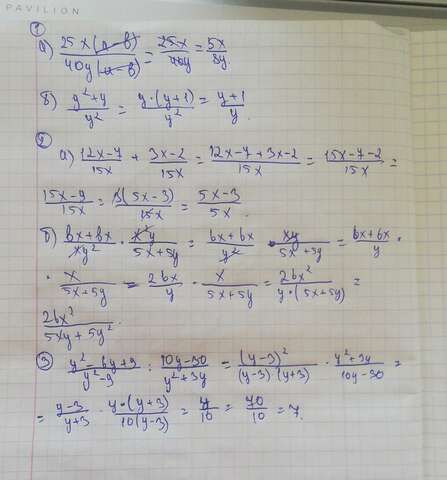 PAVILION
①
а) 25x(a-b)/40y(a-b) = 25x/40y = 5x/8y
б) y²+y/y² = y·(y+1)/y² = y+1/y.
②
а) 12x-7/15x + 3x-2/15x = 12x-7+3x-2/15x = 15x-7-2/15x =
15x-9/15x = 3(5x-3)/15x = 5x-3/5x.
б) bx+bx/xy² · x²y/5x+5y = bx+bx/y² · xy/5x+5y = bx+bx/y ·
· x/5x+5y = 2bx/y · x/5x+5y = 2bx²/y·(5x+5y) =
2bx²/5xy+5y².
③ y²-6y+9/y²-9 : 10y-30/y²+3y = (y-3)²/(y-3)·(y+3) · y²+3y/10y-30 =
= y-3/y+3 · y·(y+3)/10(y-3) = y/10 = 70/10 = 7.